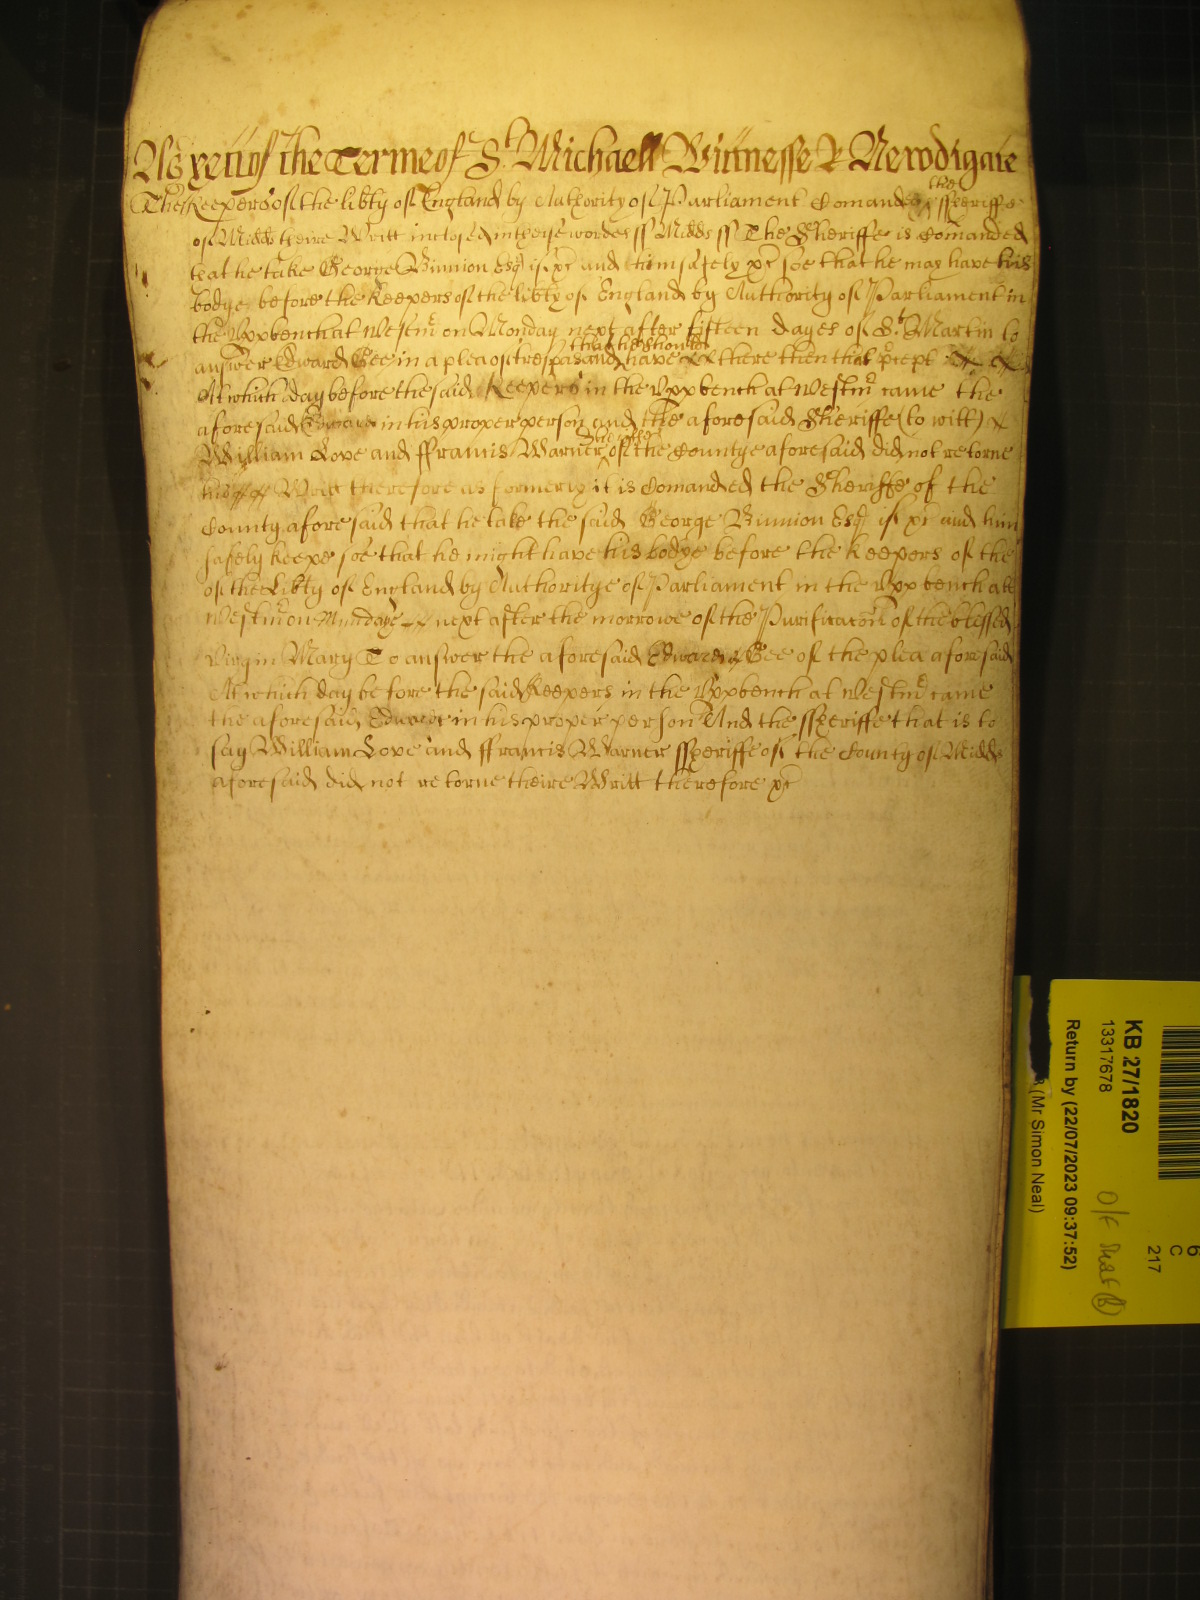 As yett of the Terme of St. Michaell Witnesse R Newdigate
The Keepers of the libty of England by Authority of Parliament Comanded the Ssheriffe
of Midds theire Writt inclosed in theise wordes ss Midds ss The Sheriffe is Comanded
that he take George Bunnion Esq if &c and him safely &c soe that he may have his
bodye before the Keepers of the libty of England by Authority of Parliament in
the Uppbench at Westmr on Monday next after fifteen dayes of St. Martin to
that he should
answer Edward Gee in a plea of trespas and have there then that pcept
At which day before the said Keepers in the Uppbench at Westmr came the
aforesaid Edward in his proper person and the aforesaid Sheriffe (to witt)
Sheriffe
William Love and ffrancis Warner of the Countye aforesaid did not retorne
his Writt therefore as formerly it is Comanded the Sheriffe of the
County aforesaid that he take the said George Bunnion Esq if &c and him
safely keepe soe that he might have his bodye before the Keepers of the
of the Libty of England by Authoritye of Parliament in the Uppbench att
Westmr on Mundaye next after the morrowe of the Purificacon of the blessed
Virgin Mary To answer the aforesaid Edward Gee of the plea aforesaid
At which day before the said Keepers in the Uppbench at Westmr came
the aforesaid Edward in his proper person And the Ssheriffe that is to
say William Love and ffrancis Warner Ssheriffe of the County of Midds
aforesaid did not retorne theire Writt therefore &c
KB 27/1820
13317678
Return by (22/07/2023 09:37:52)
(Mr Simon Neal)
6
C
217